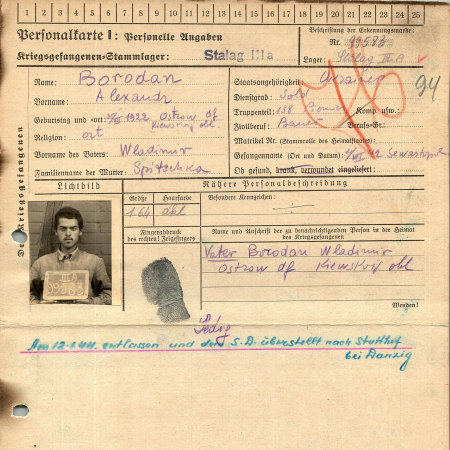 1 2 3 4 5 6 7 8 9 10 11 12 13 14 15 16 17 18 19 20 21 22 23 24 25
Personalkarte I: Personelle Angaben
Beschriftung der Erkennungsmarke:
Nr. 99583
Kriegsgefangenen-Stammlager: Stalag IIIa
Lager: Stalag III A
Des Kriegsgefangenen
Name: Borodan
Staatsangehörigkeit: Ukrainer
94
Vorname: Alexandr
Dienstgrad: Sold
Truppenteil: 138 Komp. usw.:
Geburtstag und -ort: 1922 Ostrow df Kiewskoj obl.
Zivilberuf: Bauer Berufs-Gr.:
Religion: ort
Matrikel Nr. (Stammrolle des Heimatstaates):
Vorname des Vaters: Wladimir
Gefangennahme (Ort und Datum): 42 Sewastopol
Familienname der Mutter: Spitschka
Ob gesund, krank, verwundet eingeliefert:
Lichtbild
Nähere Personalbeschreibung
Größe Haarfarbe
Besondere Kennzeichen:
1.64 dkl
Fingerabdruck
des rechten! Zeigefingers
Name und Anschrift der zu benachrichtigenden Person in der Heimat
des Kriegsgefangenen
Vater Borodan Wladimir
Ostrow df Kiewskoj obl
III A
99583
Wenden!
Am 12.1.44. entlassen und dem S.D. überstellt nach Stutthof
bei Danzig